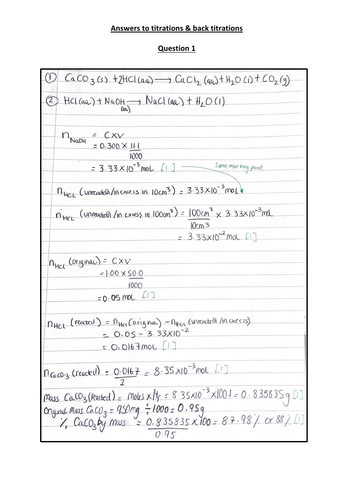 Answers to titrations & back titrations
Question 1
① CaCO3(s) + 2HCl(aq) → CaCl2(aq) + H2O(l) + CO2(g)
② HCl(aq) + NaOH(aq) → NaCl(aq) + H2O(l)
nNaOH = C×V
= 0.300 × 11.1
1000
= 3.33×10⁻³ mol [1]
Same marking point
nHCl (unreacted/in excess in 10cm³) = 3.33×10⁻³ mol
nHCl (unreacted/in excess in 100cm³) = 100cm³ × 3.33×10⁻³ mol
10cm³
= 3.33×10⁻² mol [1]
nHCl (original) = C×V
= 1.00 × 50.0
1000
= 0.05 mol [1]
nHCl (reacted) = nHCl (original) - nHCl (unreacted/in excess)
= 0.05 - 3.33×10⁻²
= 0.0167 mol [1]
nCaCO3 (reacted) = 0.0167 = 8.35×10⁻³ mol [1]
2
Mass CaCO3 (reacted) = moles × Mr = 8.35×10⁻³ × 100.1 = 0.835835g [1]
Original Mass CaCO3 = 950mg ÷ 1000 = 0.95g
% CaCO3 by mass = 0.835835 × 100 = 87.98% or 88% [1]
0.95